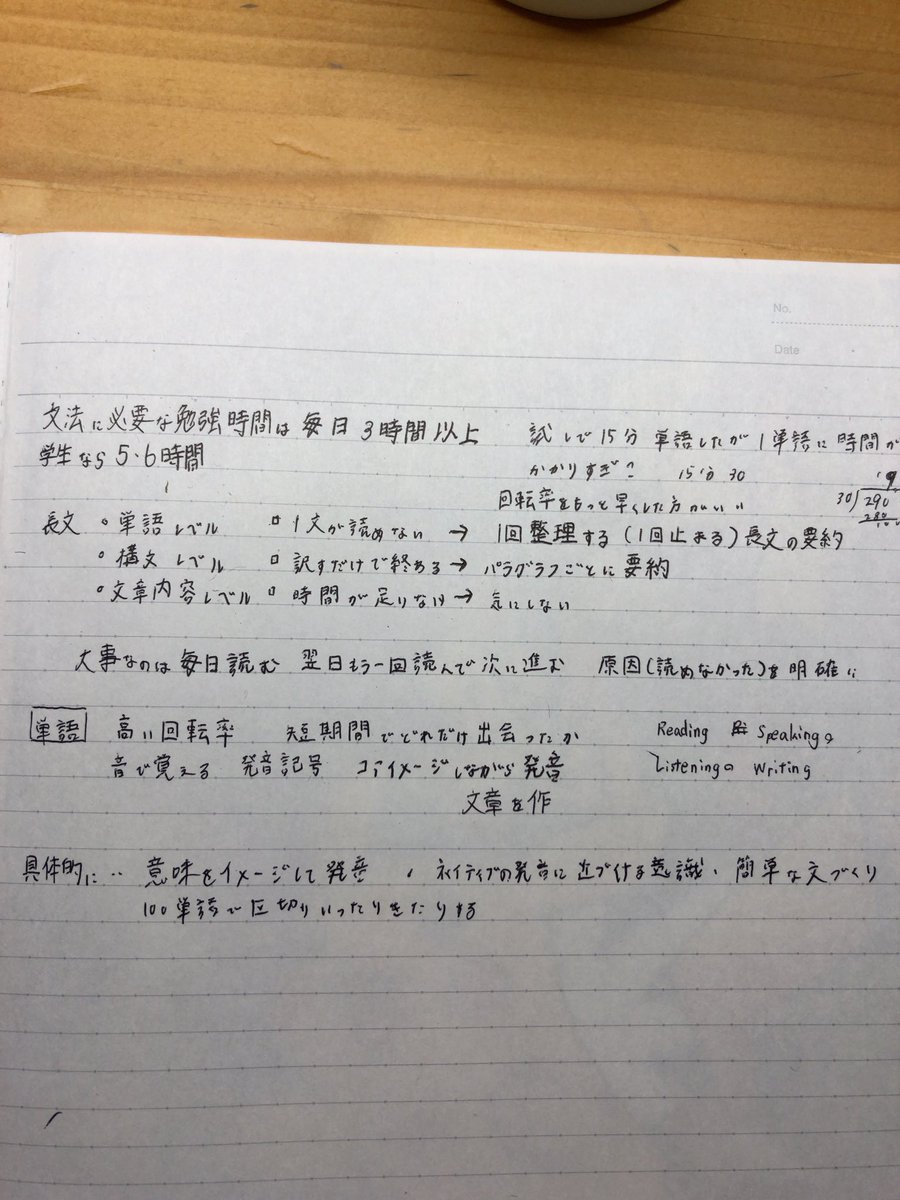 No.
Date
文法に必要な勉強時間は 毎日 3時間以上
学生なら 5・6時間
試しで15分 単語したが 1単語に時間が
かかりすぎ? 15分 30
回転率をもっと早くした方がいい
30)290
長文 ・単語レベル □ 1文が読めない → 1回整理する(1回止まる)長文の要約
・構文レベル □ 訳すだけで終わる → パラグラフごとに要約
・文章内容レベル □ 時間が足りない → 気にしない
大事なのは毎日読む 翌日もう一回読んで次に進む 原因(読めなかった)を明確に
単語 高い回転率 短期間でどれだけ出会ったか
音で覚える 発音記号 コアイメージしながら発音
文章を作
Reading Speaking
Listening Writing
具体的に‥ 意味をイメージして発音 ・ネイティブの発音に近づける意識・簡単な文づくり
100単語で区切りいったりきたりする